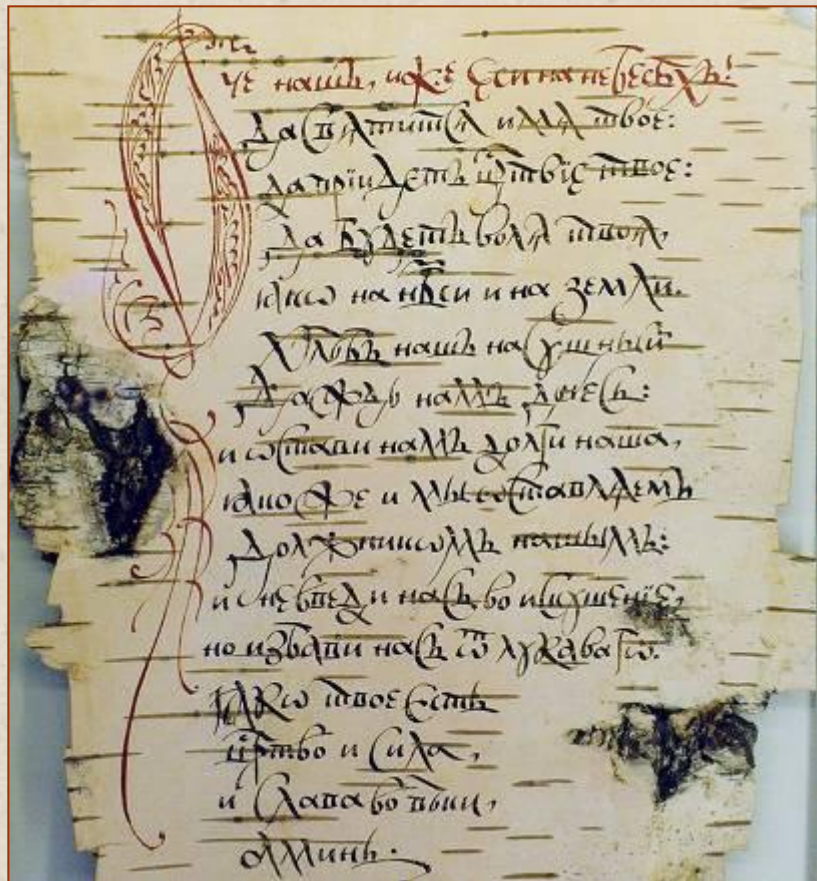 Ѿче нашъ, иже еси на небесѣхъ!
да свѧтитсѧ имѧ твое:
да прїидетъ цр҃твїе твое:
да будетъ волѧ твоѧ,
ꙗкѡ на нб҃си и на земли.
Хлѣбъ нашъ насущный
даждь намъ днесь:
и ѡстави намъ долги наша,
ꙗкоже и мы ѡставлѧемъ
должникѡмъ нашымъ:
и не введи насъ во искушенїе,
но избави насъ ѿ лукавагѡ.
ꙗкѡ твое есть
цр҃тво и сила,
и слава во вѣки,
аминь.